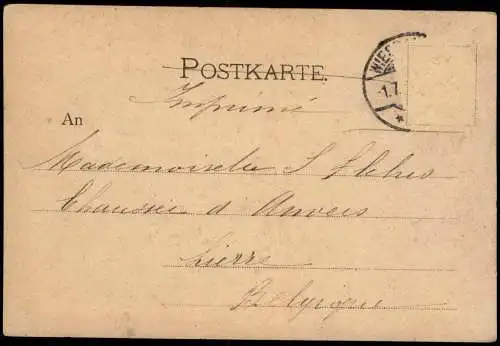 POSTKARTE.
Imprimé
WIESB
-1.7
An
Mademoiselle J
Chaussée d'Anvers
Lierre
Belgique